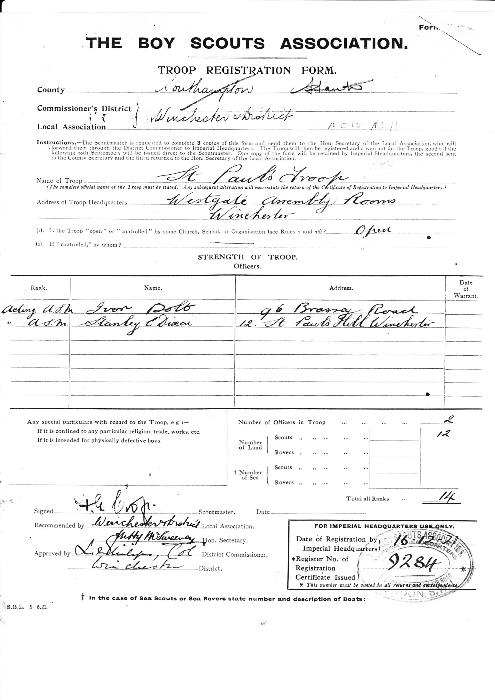 Form
THE BOY SCOUTS ASSOCIATION.
TROOP REGISTRATION FORM.
County Southampton Hants
Commissioner's District
Local Association
Winchester & District
Instructions.—The Scoutmaster is requested to complete 3 copies of this form and send them to the Hon. Secretary of the Local Association, who will
forward them through the District Commissioner to Imperial Headquarters. The Troop will then be registered and
will be issued direct to the Scoutmaster. One copy of the form will be retained by Imperial Headquarters, the second sent
to the County Secretary and the third returned to the Hon. Secretary of the Local Association.
Name of Troop St Paul's Troop
(The complete official name of the Troop must be stated. Any subsequent alteration will necessitate the return of the Certificate of Registration to Imperial Headquarters.)
Address of Troop Headquarters Westgate Assembly Rooms
Winchester
(d). Is the Troop "open" or "controlled" by some Church, School or Organisation (see Rules Open
(e). If "controlled," by whom?
STRENGTH OF TROOP.
Officers.
Rank. Name. Address. Date of Warrant.
Acting A.S.M. Ivor 96 Road
" A.S.M. Stanley C Dixon 12. St Pauls Hill Winchester
Any special particulars with regard to the Troop, e.g.:—
If it is confined to any particular religion, trade, works, etc.
If it is intended for physically defective boys.
Number of Officers in Troop 2
Number of Land Scouts 12
Rovers
† Number of Sea Scouts
Rovers
Total all Ranks 14
Signed Scoutmaster. Date
Recommended by Winchester & District Local Association.
Hon. Secretary.
Approved by Col District Commissioner.
Winchester District.
FOR IMPERIAL HEADQUARTERS USE ONLY.
Date of Registration by Imperial Headquarters
*Register No. of Registration Certificate Issued 9284
* This number must be quoted in all returns and correspondence.
† In the case of Sea Scouts or Sea Rovers state number and description of Boats: